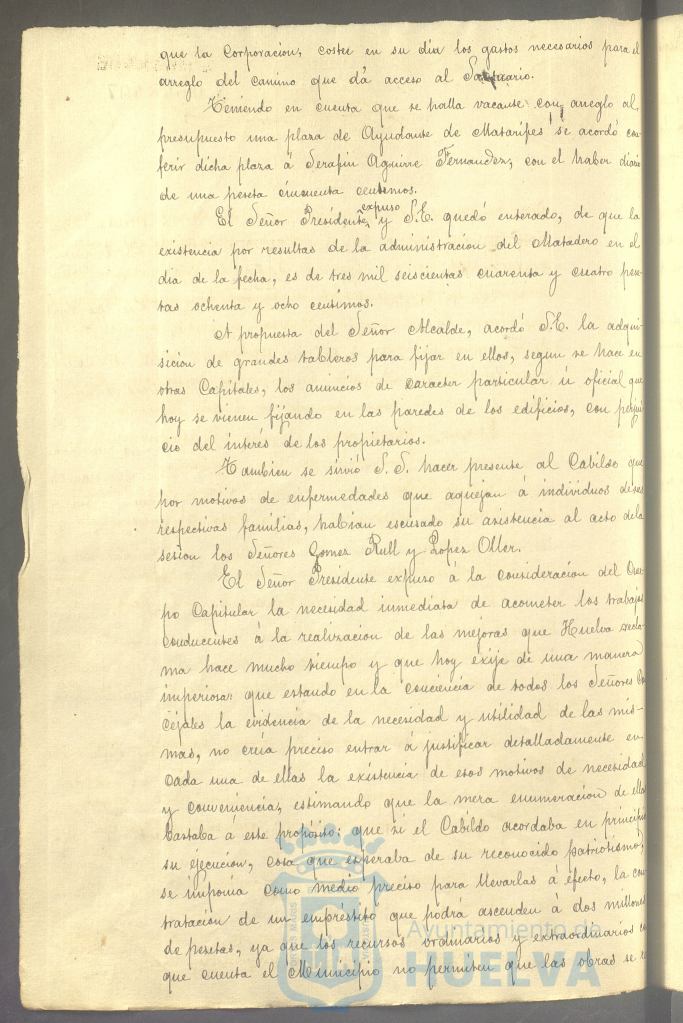 que la Corporacion, costee en su dia los gastos necesarios para el
arreglo del camino que dá acceso al Santuario.
Teniendo en cuenta que se halla vacante con arreglo al
presupuesto una plaza de Ayudante de Matarifes se acordó con-
ferir dicha plaza á Serafin Aguirre Fernandez, con el haber diario
de una peseta cincuenta centimos.
El Señor Presidente expuso y S.E. quedó enterado, de que la
existencia por resultas de la administracion del Matadero en el
dia de la fecha, es de tres mil seiscientas cuarenta y cuatro pese-
tas ochenta y ocho centimos.
A propuesta del Señor Alcalde, acordó S.E. la adqui-
sicion de grandes tableros para fijar en ellos, segun se hace en
otras Capitales, los anuncios de caracter particular ú oficial que
hoy se vienen fijando en las paredes de los edificios, con perjui-
cio del interés de los propietarios.
Tambien se sirvió S.S. hacer presente al Cabildo que
por motivos de enfermedades que aquejan á individuos de sus
respectivas familias, habian escusado su asistencia al acto de la
sesion los Señores Gomez Rull y Lopez Oller.
El Señor Presidente expuso á la consideracion del Cuer-
po Capitular la necesidad inmediata de acometer los trabajos
conducentes á la realizacion de las mejoras que Huelva recla-
ma hace mucho tiempo y que hoy exije de una manera
imperiosa: que estando en la conciencia de todos los Señores Con-
cejales la evidencia de la necesidad y utilidad de las mis-
mas, no creia preciso entrar á justificar detalladamente en
cada una de ellas la existencia de esos motivos de necesidad
y conveniencia, estimando que la mera enumeracion de ellas
bastaba á este propósito: que si el Cabildo acordaba en principio
su ejecucion, cosa que esperaba de su reconocido patriotismo,
se imponia como medio preciso para llevarlas á efecto, la con-
tratacion de un empréstito que podrá ascender á dos millones
de pesetas, ya que los recursos ordinarios y extraordinarios con
que cuenta el Municipio no permiten que las obras se
Ayuntamiento de
HUELVA